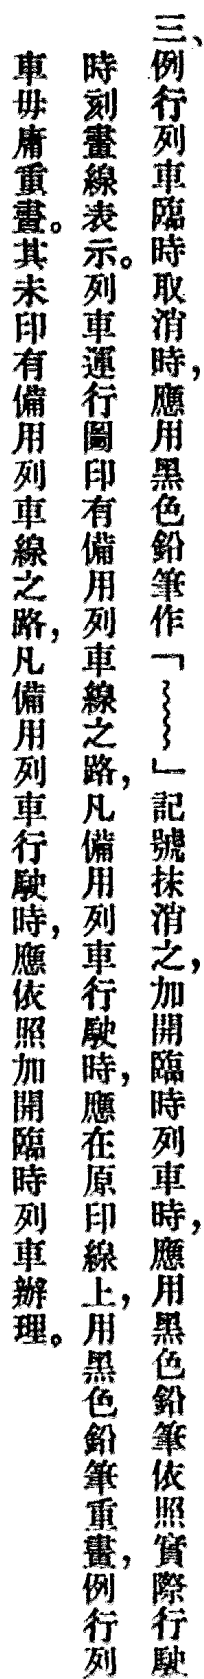 三、例行列車臨時取消時，應用黑色鉛筆作「﹏﹏」記號抹消之，加開臨時列車時，應用黑色鉛筆依照實際行駛
時刻畫線表示。列車運行圖印有備用列車線之路，凡備用列車行駛時，應在原印線上，用黑色鉛筆重畫，例行列
車毋庸重畫。其未印有備用列車線之路，凡備用列車行駛時，應依照加開臨時列車辦理。